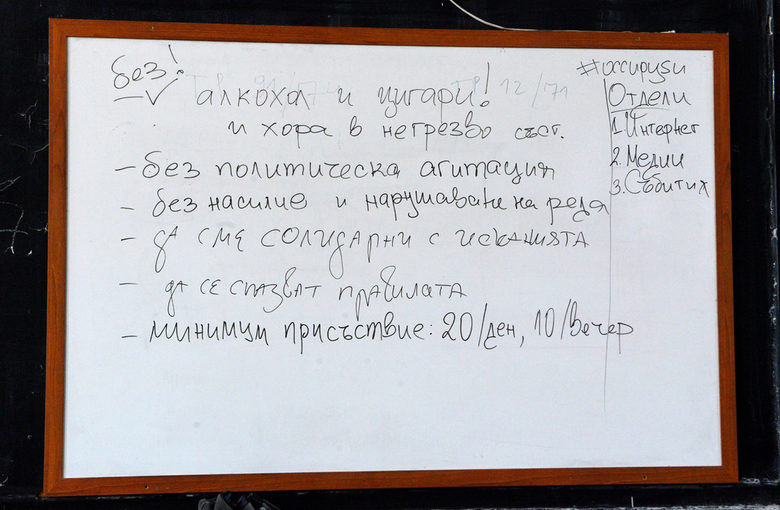 без!
– алкохол и цигари!
и хора в нетрезво съст.
– без политическа агитация
– без насилие и нарушаване на реда
– да сме солидарни с исканията
– да се спазват правилата
– минимум присъствие: 20/ден, 10/вечер
#occupysu
Отдели
1. Интернет
2. Медии
3. Събития